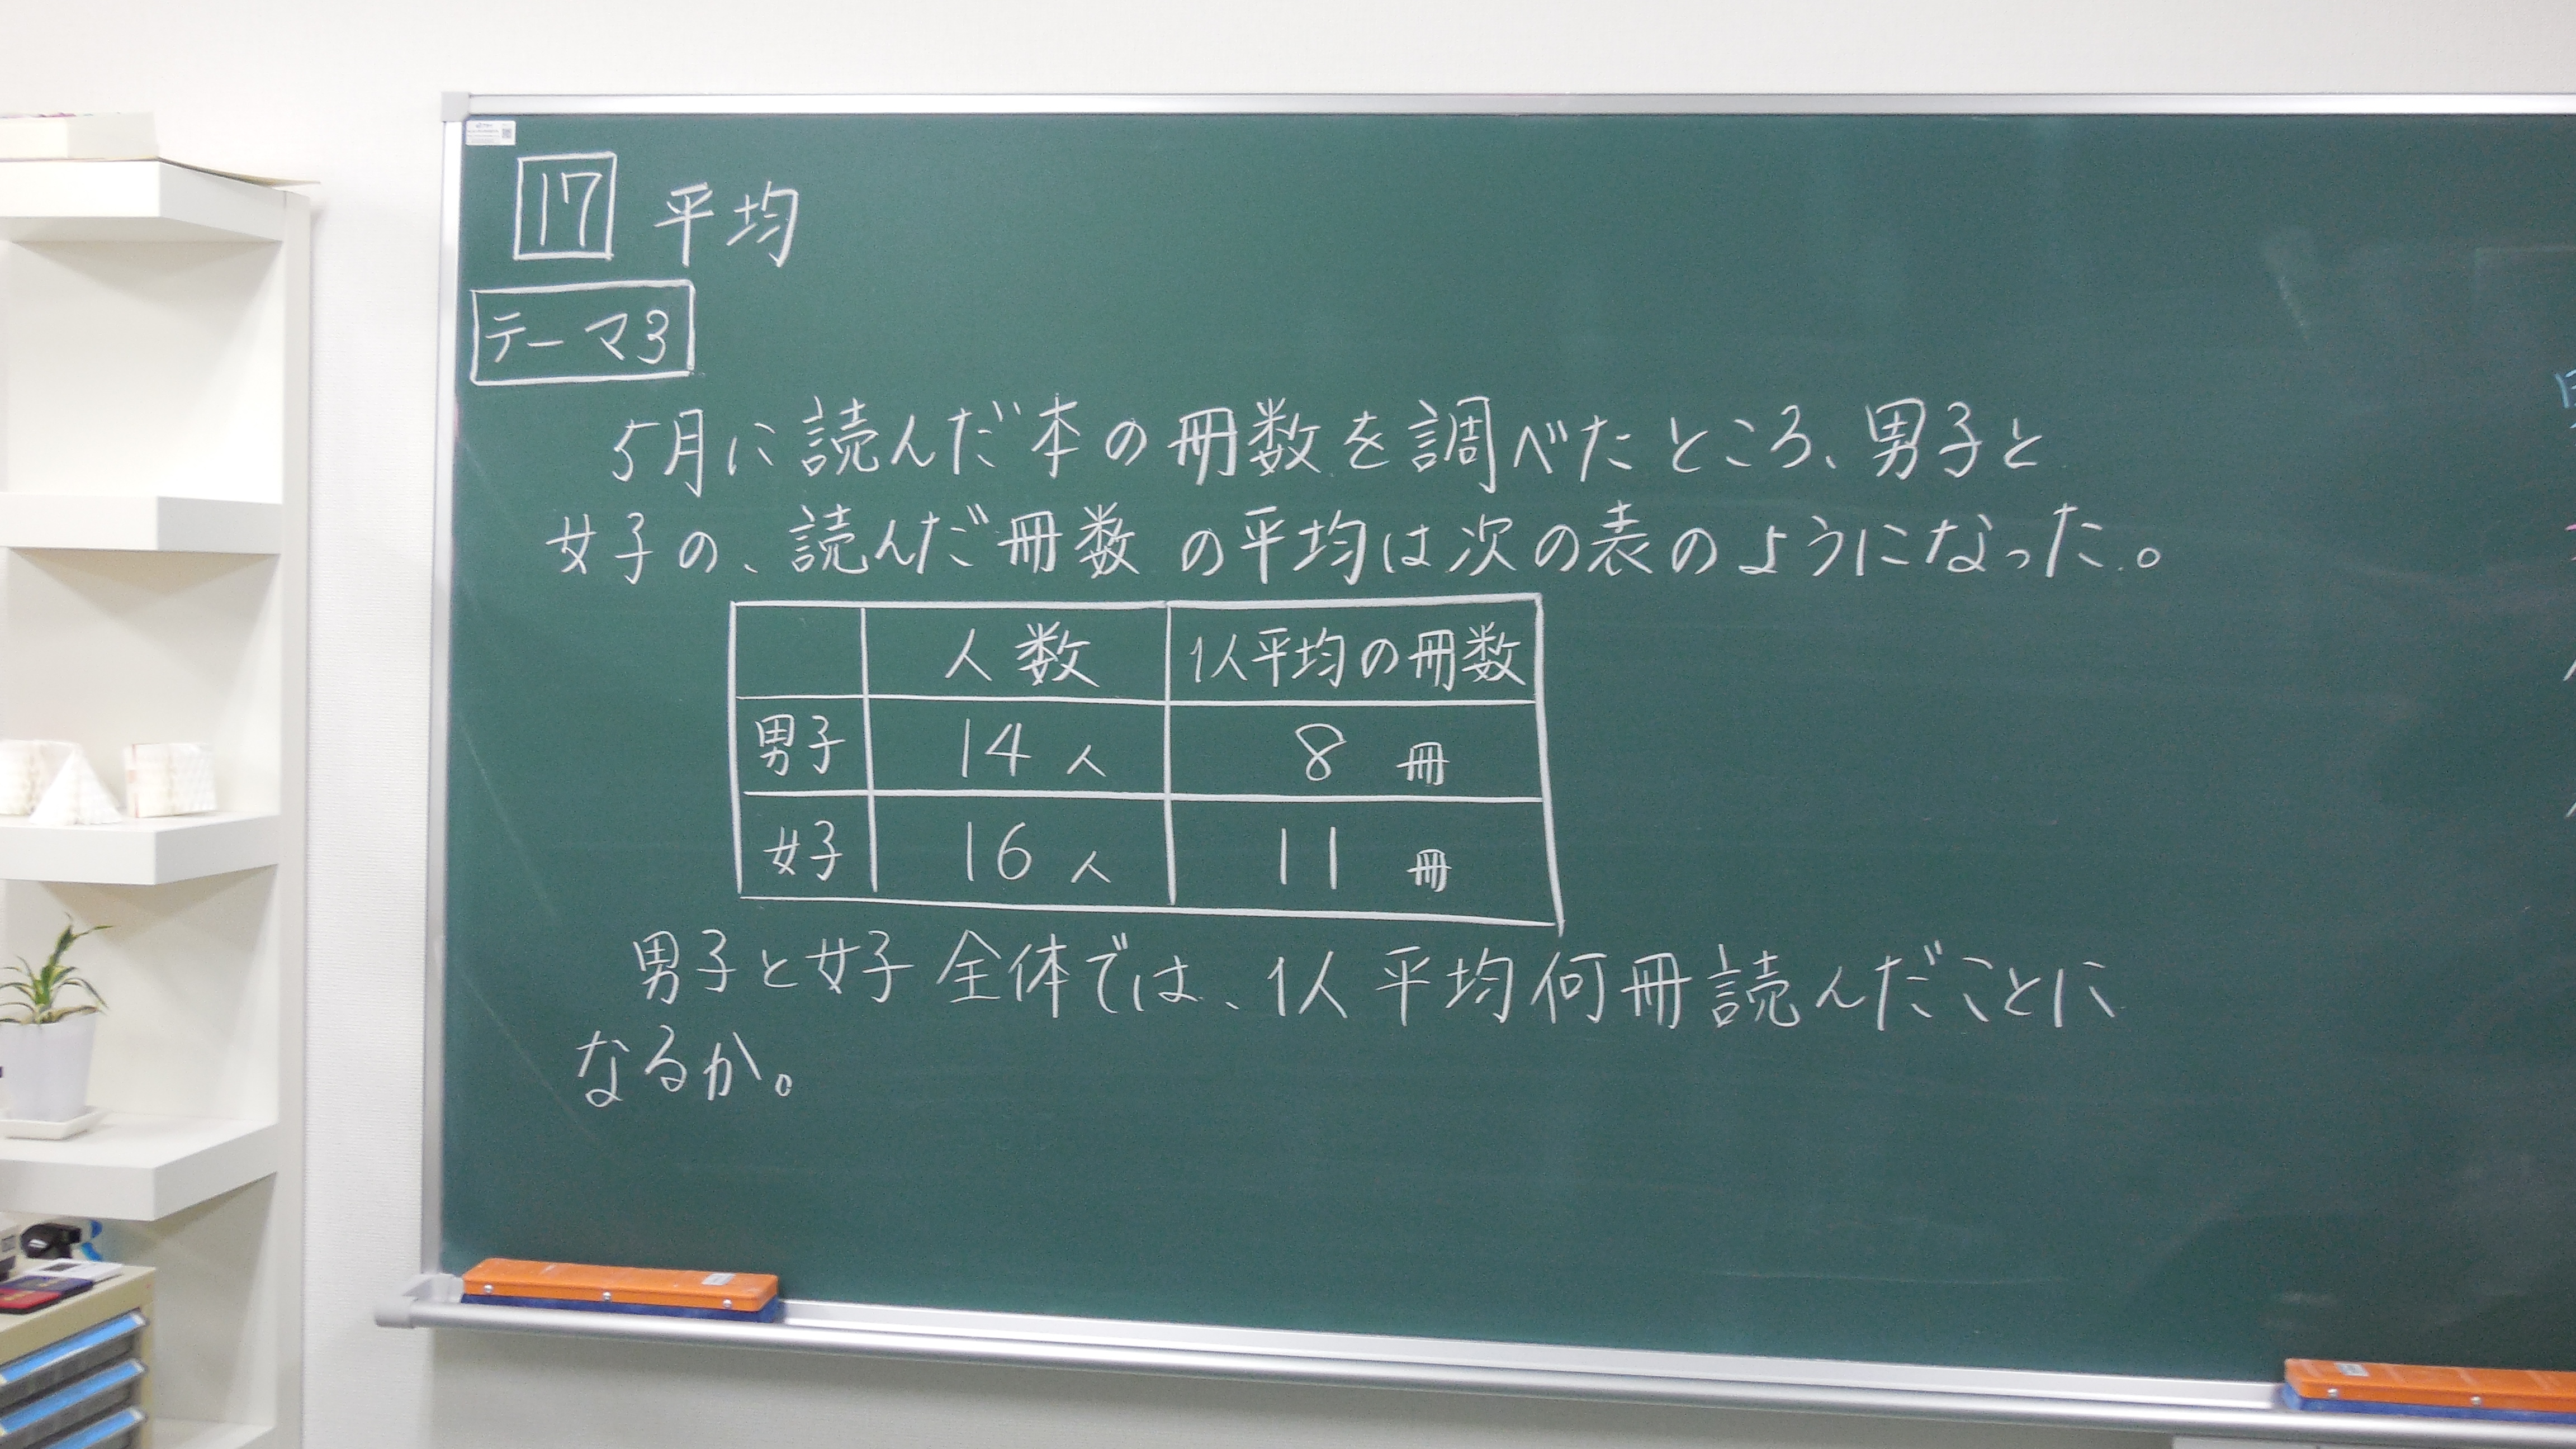 17 平均
テーマ3
5月に読んだ本の冊数を調べたところ、男子と
女子の、読んだ冊数の平均は次の表のようになった。
人数 1人平均の冊数
男子 14人 8冊
女子 16人 11冊
男子と女子全体では、1人平均何冊読んだことに
なるか。